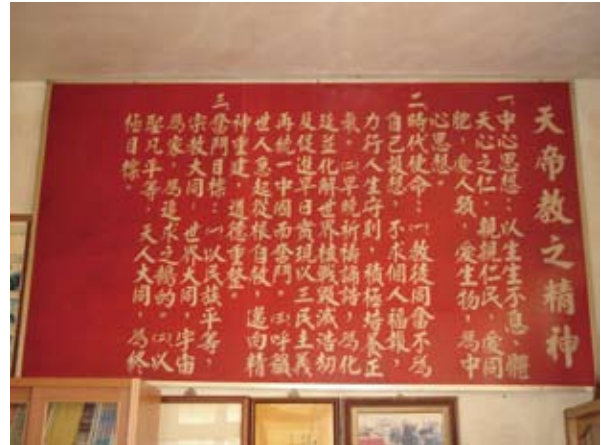 天帝教之精神
一、中心思想：以生生不息、體
天心之仁，親親仁民，愛同
胞，愛人類，愛生物，為中
心思想。
二、時代使命：㈠教徒同奮不為
自己設想，不求個人福報，
力行人生守則，積極培養正
氣，㈡早晚祈禱誦誥，為化
延並化解世界核戰毀滅浩劫
及促進早日實現以三民主義
再統一中國而奮鬥。㈢呼籲
世人急起從根自救，邁向精
神重建，道德重整。
三、奮鬥目標：㈠以民族平等，
宗教大同，世界大同，宇宙
為家，為追求之鵠的。㈡以
聖凡平等，天人大同，為終
極目標。